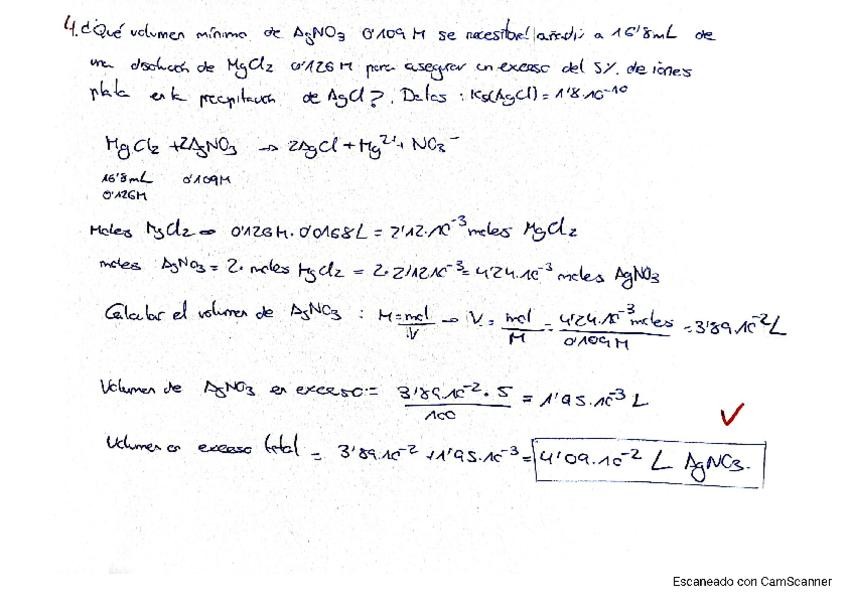 4. ¿Qué volumen mínimo de AgNO3 0'109 M se necesita añadir a 16'8mL de
una disolución de MgCl2 0'126 M para asegurar un exceso del 5% de iones
plata en la precipitación de AgCl? Datos: Ks(AgCl) = 1'8·10-10
MgCl2 + 2AgNO3 → 2AgCl + Mg2+ + NO3-
16'8mL 0'109M
0'126M
Moles MgCl2 → 0'126M·0'0168L = 2'12·10-3 moles MgCl2
moles AgNO3 = 2·moles MgCl2 = 2·2'12·10-3 = 4'24·10-3 moles AgNO3
Calcular el volumen de AgNO3 : M = mol/V → V = mol/M = 4'24·10-3 moles/0'109M = 3'89·10-2 L
Volumen de AgNO3 en exceso = 3'89·10-2 · 5/100 = 1'95·10-3 L
Volumen en exceso total = 3'89·10-2 + 1'95·10-3 = 4'09·10-2 L AgNO3.
Escaneado con CamScanner